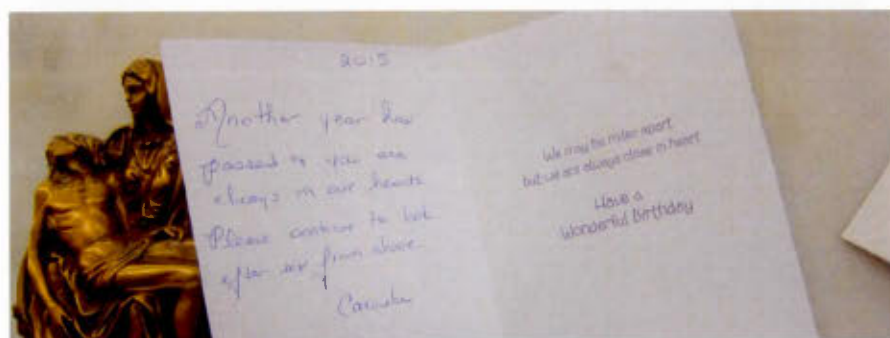 2015
Another year has
passed & you are
always in our hearts
Please continue to look
after us from above
We may be miles apart
but we are always close in heart
Have a
Wonderful Birthday